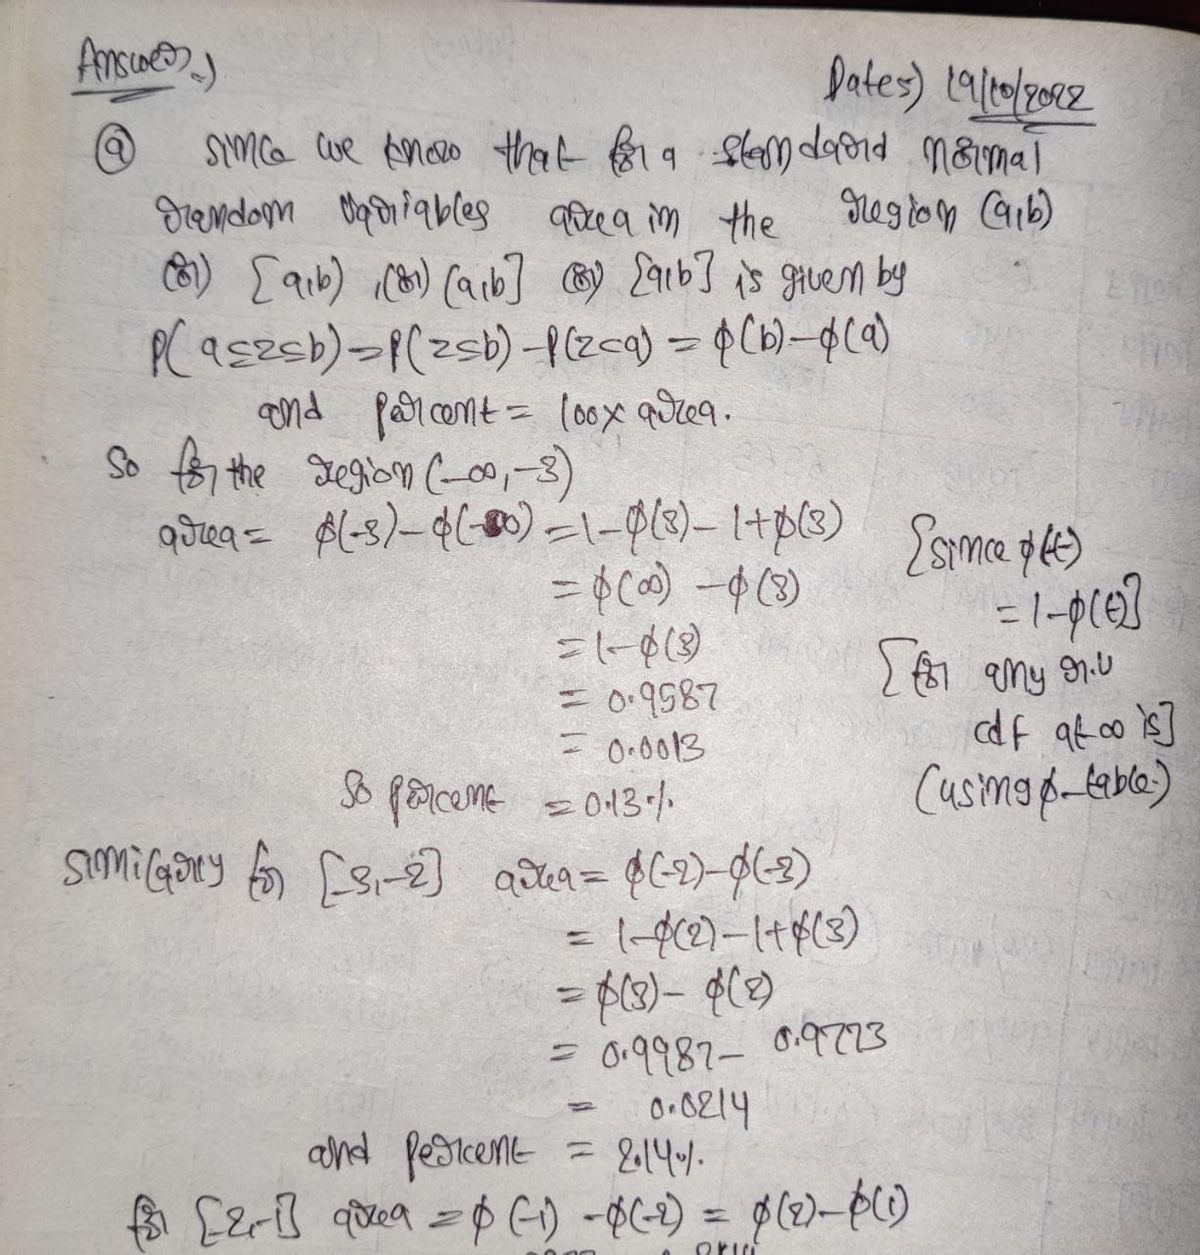 Answer:)
Date:) 19/10/2022
(a) Since we know that for a standard normal
random variables area in the region (a,b)
(or) [a,b), (or) (a,b] (or) [a,b] is given by
P(a≤z≤b)=P(z≤b)-P(z<a) = φ(b)-φ(a)
and percent = 100x area.
So for the region (-∞,-3)
area = φ(-3)-φ(-∞) = 1-φ(3)-1+φ(3) {since φ(-t)
= φ(∞) -φ(3) = 1-φ(t)]
= 1-φ(3) [for any r.v
= 0.9587 cdf at ∞ is]
= 0.0013
So percent = 0.13% (using φ-table.)
Similarly for [-3,-2] area = φ(-2)-φ(-3)
= 1-φ(2)-1+φ(3)
= φ(3)- φ(2)
= 0.9987- 0.9773
= 0.0214
and percent = 2.14%.
for [2,-1] area = φ(-1) -φ(-2) = φ(2)-φ(1)